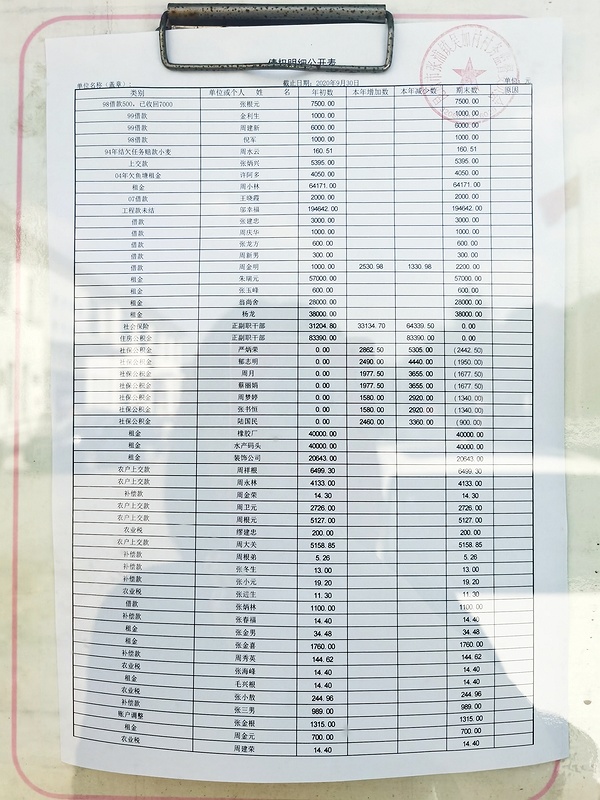 债权明细公开表
单位名称（盖章）： 截止日期：2020年9月30日 单位：元
类别 单位或个人 姓 名 年初数 本年增加数 本年减少数 期末数 原因
98借款500，已收回7000 张根元 7500.00 7500.00
99借款 金利生 1000.00 1000.00
99借款 周建新 6000.00 6000.00
98借款 倪军 1000.00 1000.00
94年结欠任务赔款小麦 周水云 160.51 160.51
上交款 张炳兴 5395.00 5395.00
04年欠鱼塘租金 许阿多 4050.00 4050.00
租金 周小林 64171.00 64171.00
07借款 王晓霞 2000.00 2000.00
工程款未结 邹幸福 194642.00 194642.00
借款 张建忠 3000.00 3000.00
借款 周庆华 1000.00 1000.00
借款 张龙方 600.00 600.00
借款 周新男 300.00 300.00
借款 周金明 1000.00 2530.98 1330.98 2200.00
租金 朱瑞元 57000.00 57000.00
租金 张玉峰 600.00 600.00
租金 翁尚舍 28000.00 28000.00
租金 杨龙 38000.00 38000.00
社会保险 正副职干部 31204.80 33134.70 64339.50 0.00
住房公积金 正副职干部 83390.00 83390.00 0.00
社保公积金 严炳荣 0.00 2862.50 5305.00 (2442.50)
社保公积金 郁志明 0.00 2490.00 4440.00 (1950.00)
社保公积金 周月 0.00 1977.50 3655.00 (1677.50)
社保公积金 蔡丽娟 0.00 1977.50 3655.00 (1677.50)
社保公积金 周梦婷 0.00 1580.00 2920.00 (1340.00)
社保公积金 张书恒 0.00 1580.00 2920.00 (1340.00)
社保公积金 陆国民 0.00 2460.00 3360.00 (900.00)
租金 橡胶厂 40000.00 40000.00
租金 水产码头 40000.00 40000.00
租金 装饰公司 20643.00 20643.00
农户上交款 周祥根 6499.30 6499.30
农户上交款 周永林 4133.00 4133.00
补偿款 周金荣 14.30 14.30
农户上交款 周卫元 2726.00 2726.00
农户上交款 周根元 5127.00 5127.00
农业税 缪建忠 200.00 200.00
农户上交款 周大关 5158.85 5158.85
补偿款 周根弟 5.26 5.26
补偿款 张冬生 13.00 13.00
补偿款 张小元 19.20 19.20
农业税 张近生 11.30 11.30
借款 张炳林 1100.00 1100.00
补偿款 张春福 14.40 14.40
租金 张金男 34.48 34.48
租金 张金喜 1760.00 1760.00
补偿款 周秀英 144.62 144.62
农业税 张海峰 14.40 14.40
租金 毛兴根 14.40 14.40
农业税 张小敖 244.96 244.96
补偿款 张三男 989.00 989.00
账户调整 张金根 1315.00 1315.00
租金 周金元 700.00 700.00
农业税 周建荣 14.40 14.40